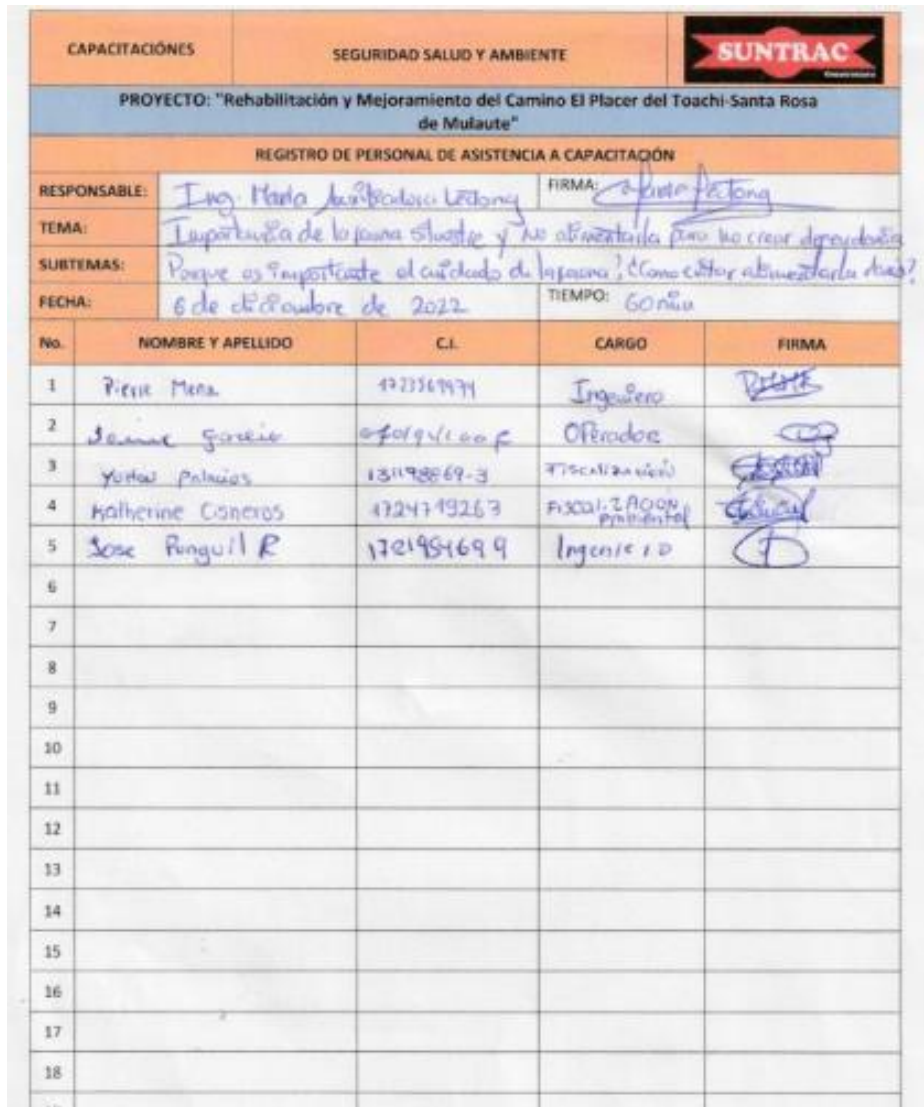 CAPACITACIÓNES
SEGURIDAD SALUD Y AMBIENTE
SUNTRAC
PROYECTO: "Rehabilitación y Mejoramiento del Camino El Placer del Toachi-Santa Rosa
de Mulaute"
REGISTRO DE PERSONAL DE ASISTENCIA A CAPACITACIÓN
RESPONSABLE: Ing. María Auxiliadora Lectong FIRMA:
TEMA: Importancia de la fauna silvestre y no alimentarla para no crear dependencia
SUBTEMAS: Porque es importante el cuidado de la fauna? ¿Como evitar alimentarla
FECHA: 6 de diciembre de 2022 TIEMPO: 60 min
No. NOMBRE Y APELLIDO C.I. CARGO FIRMA
1 Pierre Mena Ingeniero
2 Garcia Operador
3 Palacios 131198869-3 FISCALIZACIÓN
4 Katherine Cisneros 1724719267 FISCALIZACION Ambiental
5 Jose Punguil R 1721954699 Ingeniero
6
7
8
9
10
11
12
13
14
15
16
17
18